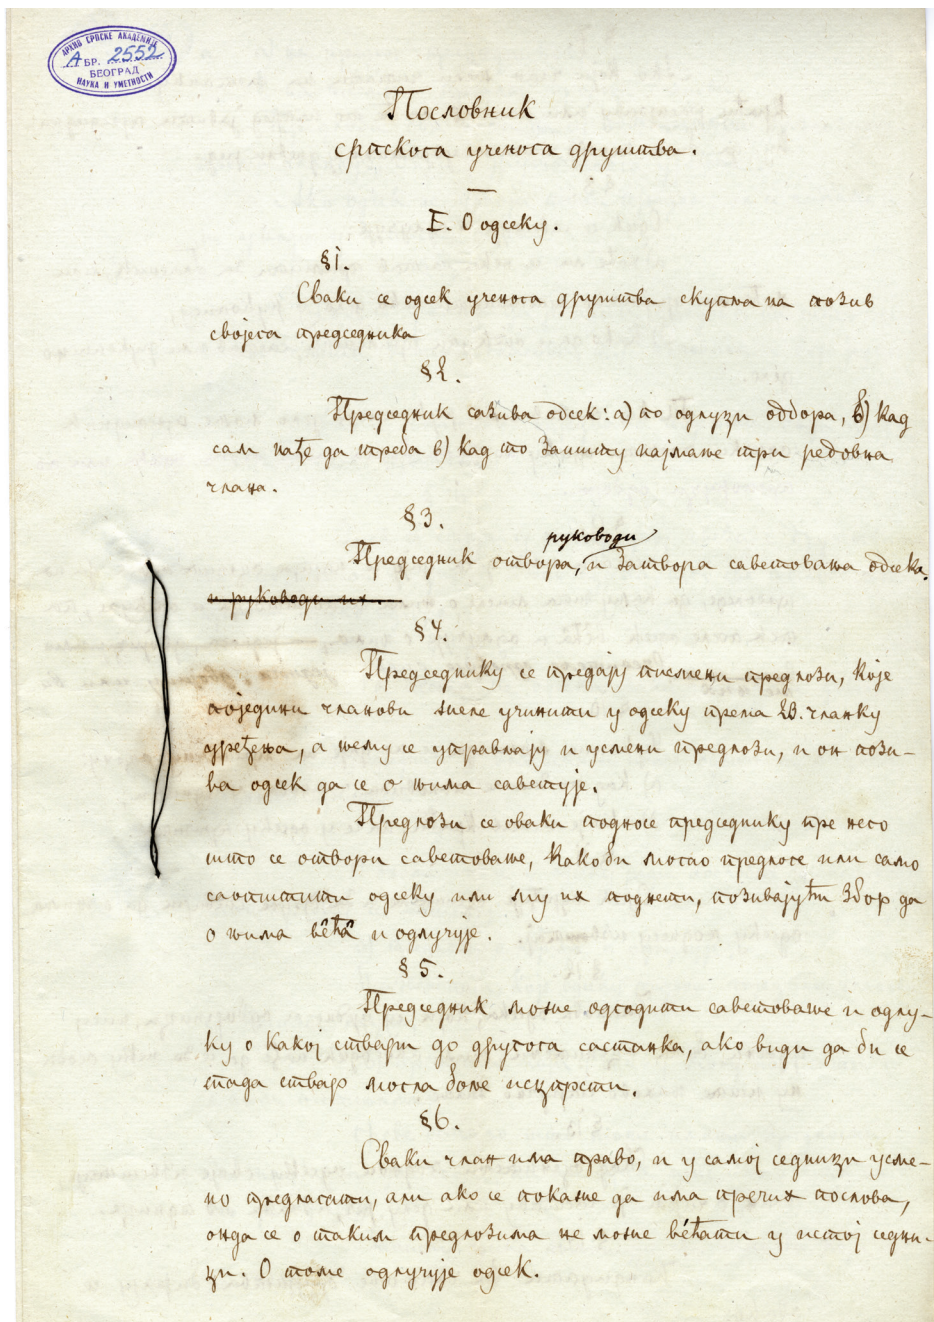 АРХИВ СРПСКЕ АКАДЕМИЈЕ
А БР. 2552
БЕОГРАД
НАУКА И УМЕТНОСТИ
Пословник
српскога ученога друштва.
Е. О одсеку.
§1.
Сваки се одсек ученога друштва скупља на позив
својега председника
§2.
Председник сазива одсек: а) по одлузи одбора, б) кад
сам нађе да треба в) кад то заишту најмање три редовна
члана.
§3.
руководи
Председник отвора, и затвора саветовања одсека.
и руководи их.
§4.
Председнику се предају писмени предлози, које
поједини чланови желе учинити у одсеку према 28. чланку
уређења, а њему се управљају и усмени предлози, и он пози-
ва одсек да се о њима саветује.
Предлози се оваки подносе председнику пре него
што се отвори саветовање, како би могао предлоге или само
саопштити одсеку или му их поднети, позивајући збор да
о њима већа и одлучује.
§5.
Председник може одгодити саветовање и одлу-
ку о какој ствари до другога састанка, ако види да би се
тада ствар могла боље исцрпсти.
§6.
Сваки члан има право, и у самој седници усме-
но предлагати, али ако се покаже да има пречих послова,
онда се о таким предлозима не може већати у истој седни-
ци. О томе одлучује одсек.